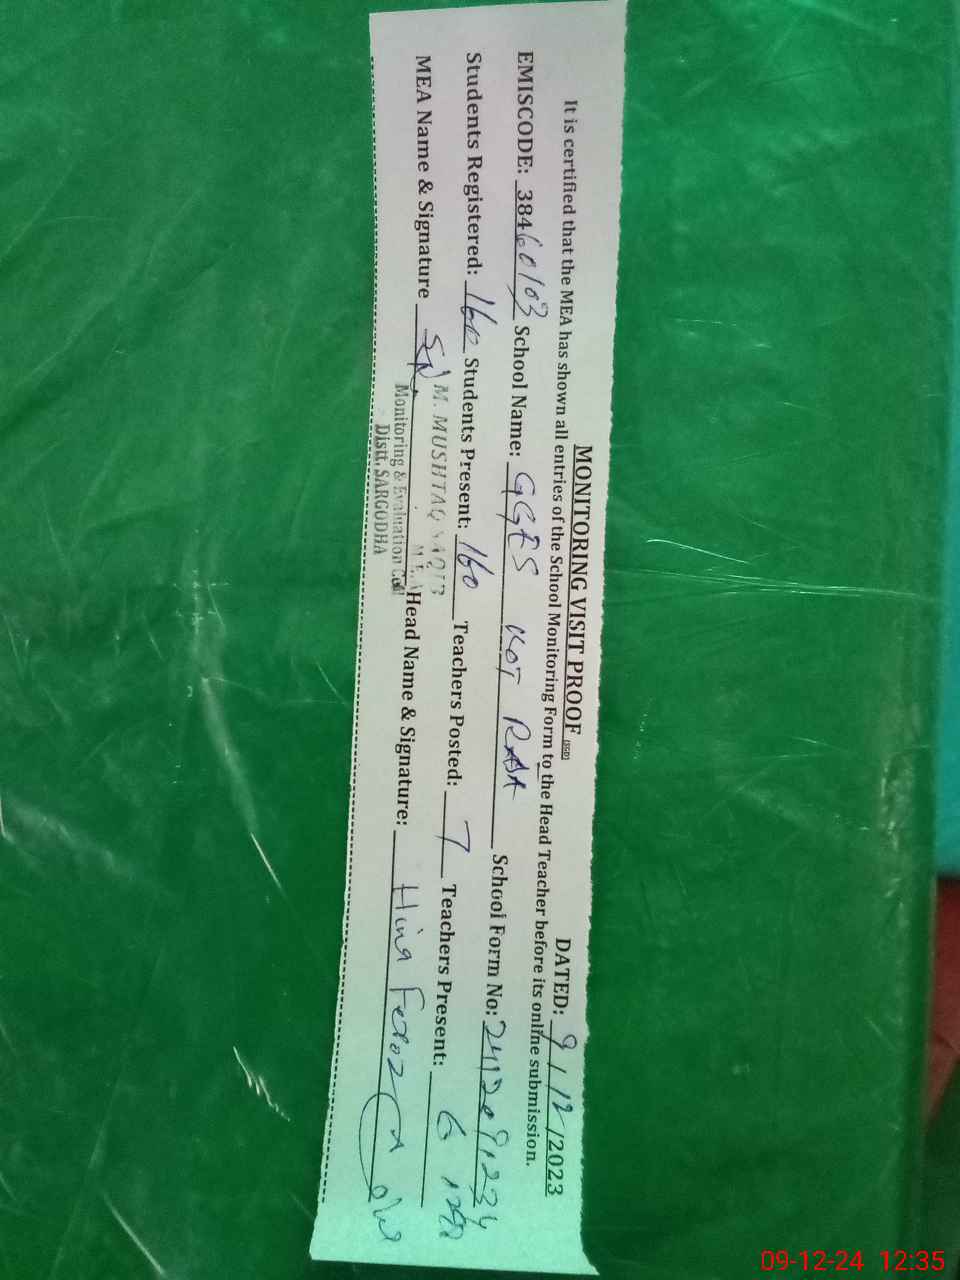 MONITORING VISIT PROOF (SGD)
DATED: 9/12/2023
It is certified that the MEA has shown all entries of the School Monitoring Form to the Head Teacher before its online submission.
EMISCODE: 38460103 School Name: GGES KOT RAJA School Form No:
Students Registered: 160 Students Present: 160 Teachers Posted: 7 Teachers Present: 6
MEA Name & Signature Head Name & Signature: Hina Feroz
M. MUSHTAQ SAQIB
M.E.A
Monitoring & Evaluation Cell
Distt. SARGODHA
09-12-24 12:35